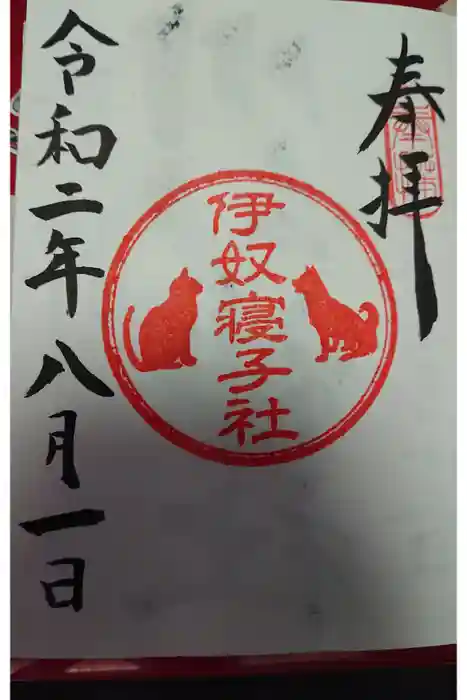 奉拝
伊奴寝子社
令和二年八月一日